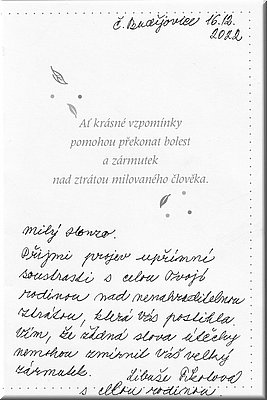 Č. Budějovice 16.12.
2022
Ať krásné vzpomínky
pomohou překonat bolest
a zármutek
nad ztrátou milovaného člověka.
Milý Honzo.
Přijmi projev upřímné
soustrasti s celou Tvojí
rodinou nad nenahraditelnou
ztrátou, která Vás postihla
Vím, že žádná slova útěchy
nemohou zmírnit Váš velký
zármutek. Libuše
s celou rodinou